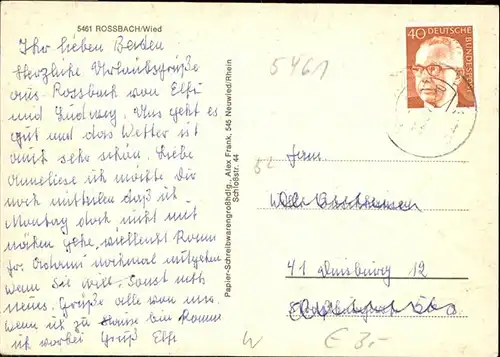 5461 ROSSBACH/Wied
Ihr lieben Beiden
Herzliche Urlaubsgrüße
aus Rossbach von Elfi
und Ludwig. Uns geht es
gut und das Wetter ist
auch sehr schön. Liebe
Anneliese ich möchte Dir
noch mitteilen daß ich
Montag doch nicht mit
nähen gehe, vielleicht kann
Fr. Adams nochmal mitgehen
wenn Sie will. Sonst nichts
neues. Grüße alle von uns.
Wenn ich zu Hause bin komme
ich vorbei Gruß Elfi
Papier-Schreibwarengroßhdlg., Alex Frank, 545 Neuwied/Rhein
Schloßstr. 44
40 DEUTSCHE
BUNDESPOST
5461
52
Fam.
41 Duisburg 12
W
€ 3.-